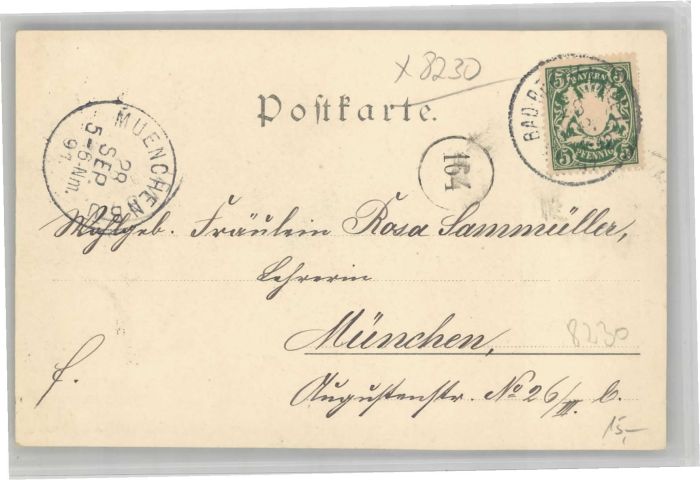 x 8230
Postkarte.
BAYERN
5 5
5 PFENNIG 5
BAD
MUENCHEN
28
SEP
5-6 Nm.
164
Wohlgeb. Fräulein Rosa Sammüller,
Lehrerin
München,
8230
f.
Augustenstr. No 26/III. b.
15,-